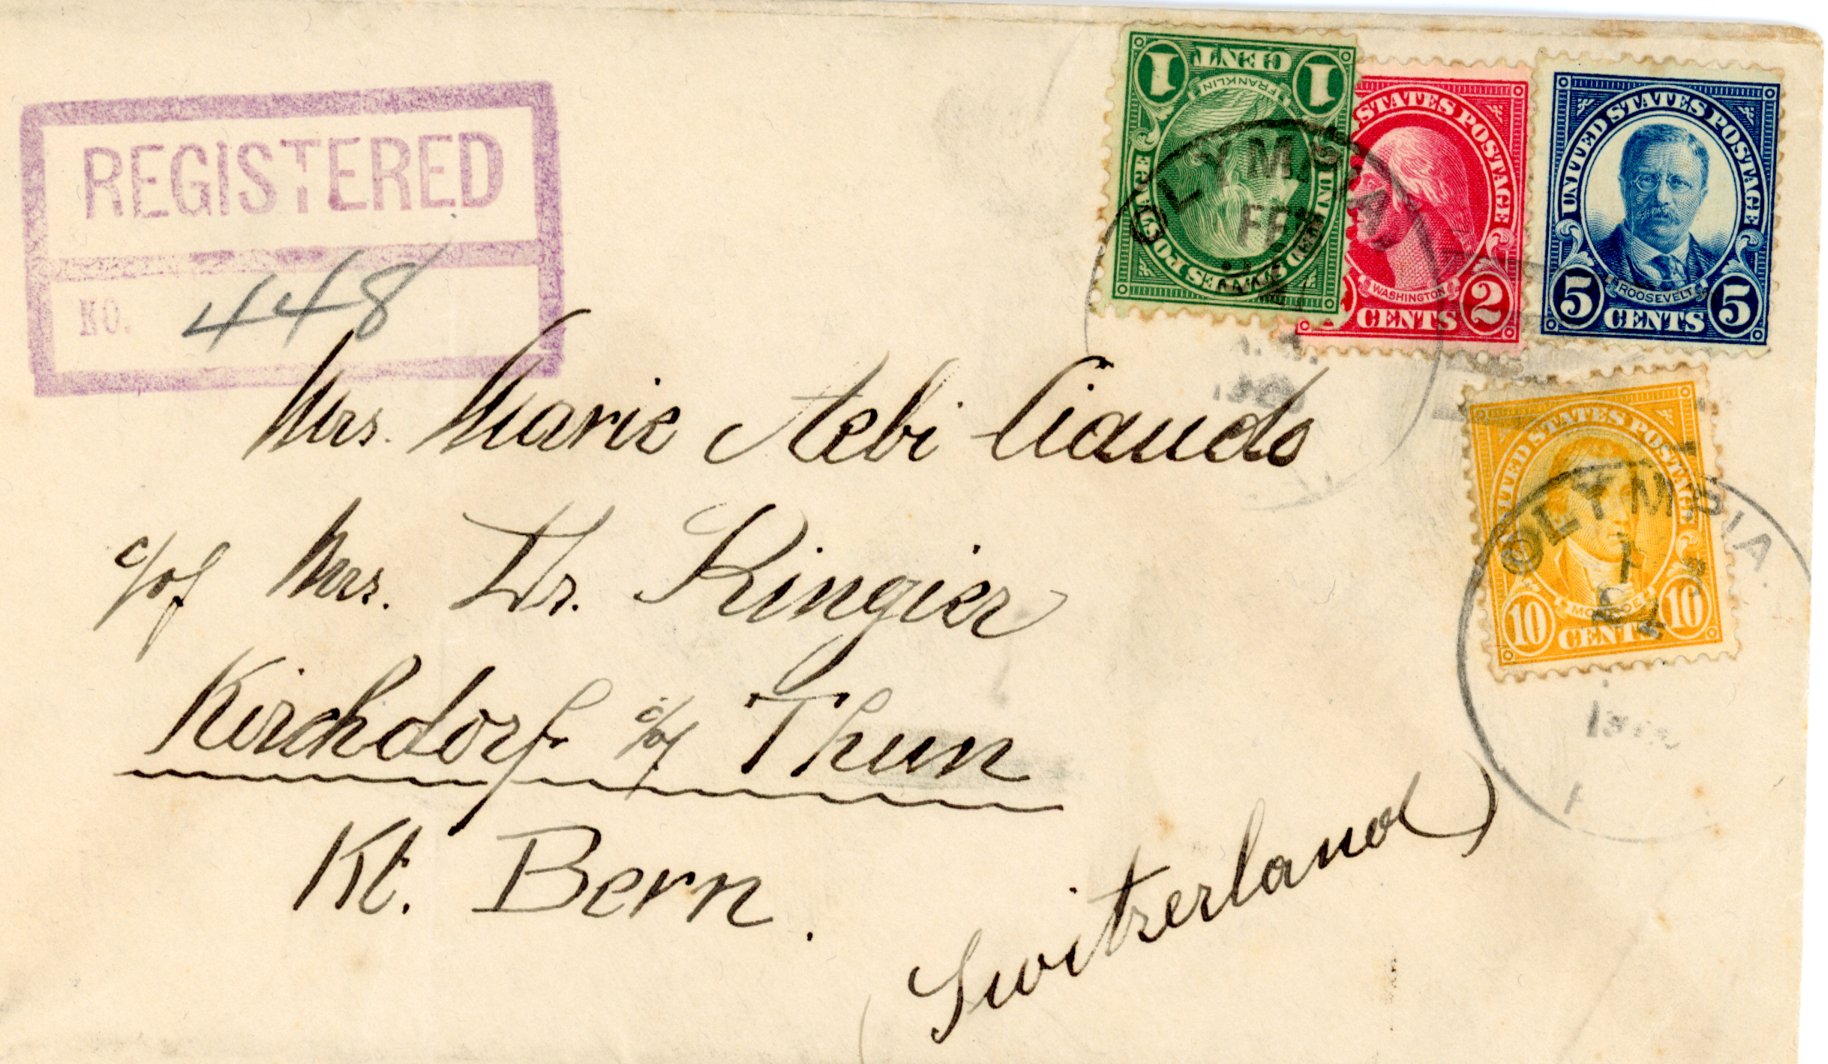 REGISTERED
NO. 448
1 CENT 1
FRANKLIN
STATES POSTAGE
WASHINGTON
CENTS 2
UNITED STATES POSTAGE
ROOSEVELT
5 CENTS 5
OLYMPIA
UNITED STATES POSTAGE
MONROE
10 CENTS 10
OLYMPIA
Mrs. Marie Aebi Ciaudo
c/of Mrs. Dr. Ringier
Kirchdorf c/of Thun
Kt. Bern.
(Switzerland)